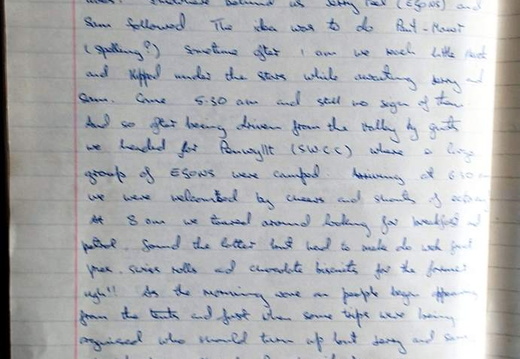 behind us Jerry Peel (ESONS) and
Sam followed The idea was to do Pant-Mawr
(spelling?) sometime after 1 am we reach little
and kipped under the stars while awaiting Jerry and
Sam. Come 5·30 am and still no sign of them
And so after being driven from the valley by gnats
we headed for Penwyllt (SWCC) where a large
group of ESONS were camped. Arriving at 6·30 am
we were welcomed by cheers and shouts of
At 8 am we toured around looking for breakfast and
petrol. Found the latter but had to make do with fruit
pies, swiss rolls and chocolate biscuits for the former
ugh!! As the morning wore on people began appearing
from the tents and just when some trips were being
organised who should turn up but Jerry and Sam